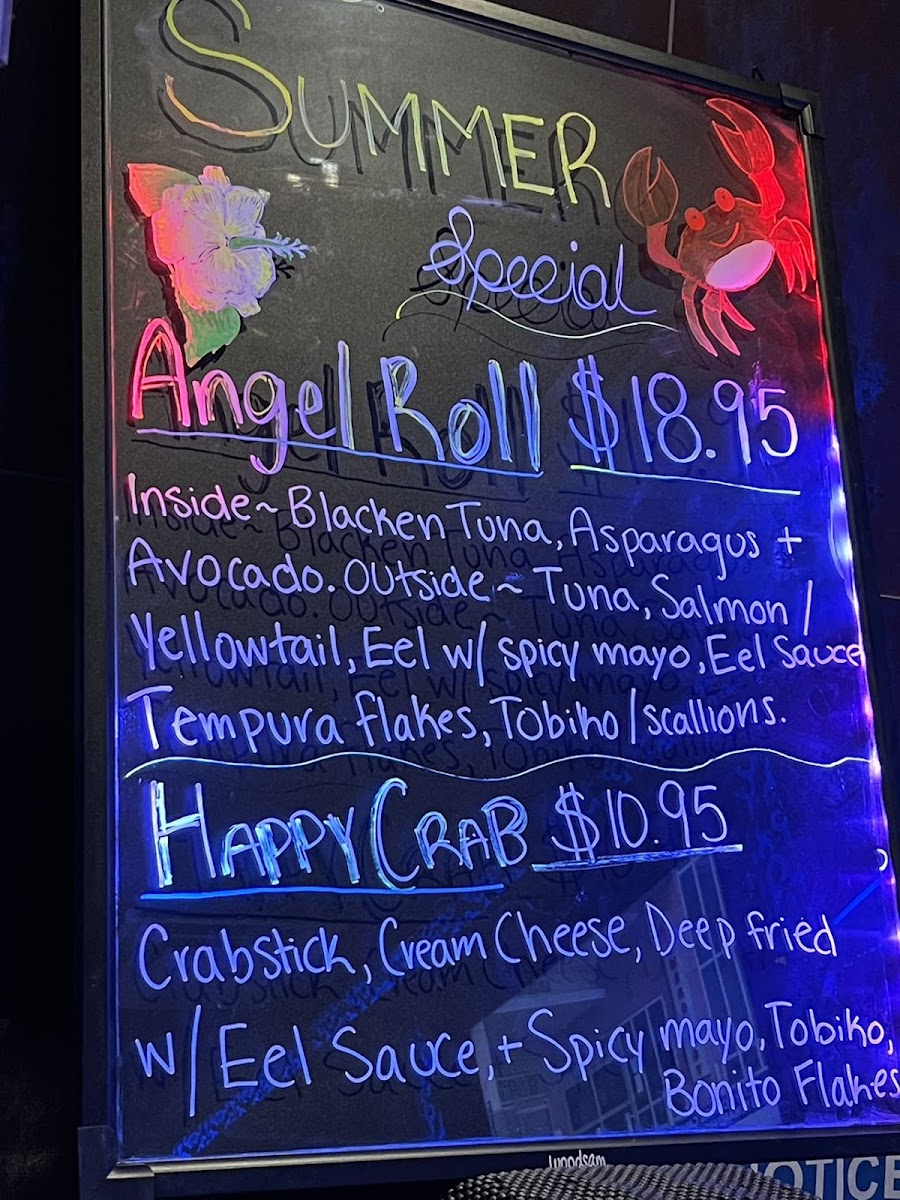 SUMMER
Special
Angel Roll $18.95
Inside~ Blacken Tuna, Asparagus +
Avocado. Outside~ Tuna, Salmon /
Yellowtail, Eel w/ spicy mayo, Eel Sauce
Tempura flakes, Tobiko / scallions.
HAPPY CRAB $10.95
Crabstick, Cream Cheese, Deep fried
w/ Eel Sauce, + Spicy mayo, Tobiko,
Bonito Flakes
woodsam
NOTICE